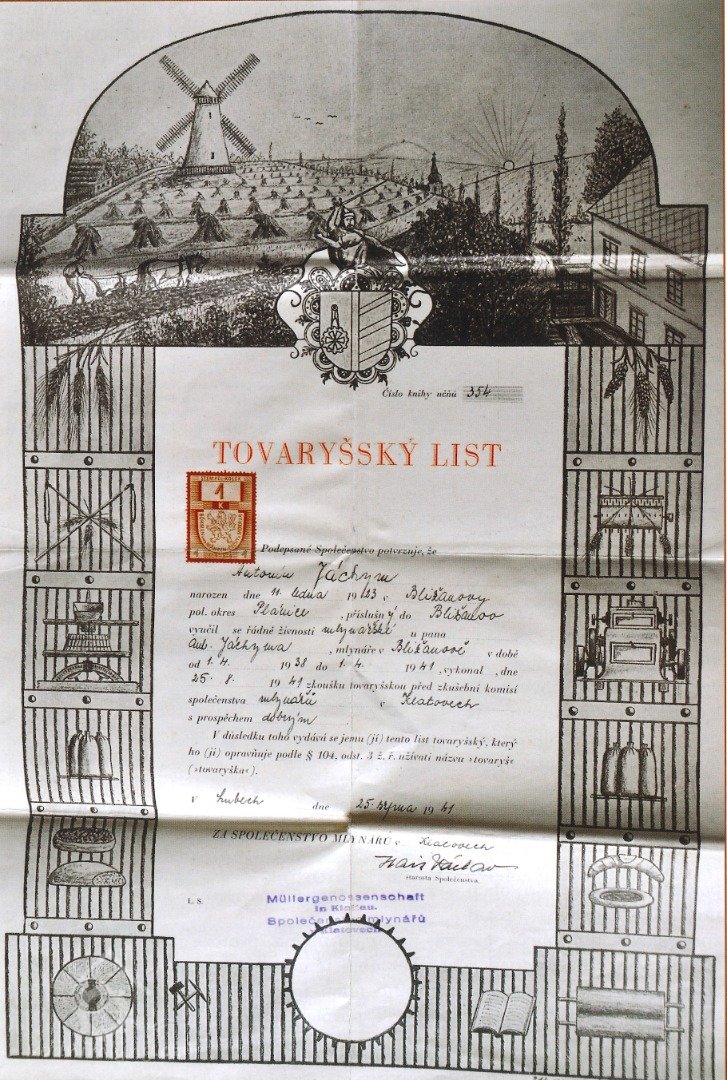 Číslo knihy učňů 354
TOVARYŠSKÝ LIST
STEMPELMARKE
1
K
Podepsané Společenstvo potvrzuje, že
Antonín Jáchym
narozen dne 11. ledna 1923 v Bližanovy
pol. okres Plánice, příslušný do Bližanov
vyučil se řádně živnosti mlynářské u pana
Ant. Jáchyma, mlynáře v Bližanově v době
od 1. 4. 1938 do 1. 4. 1941, vykonal, dne
25. 8. 1941 zkoušku tovaryšskou před zkušební komisí
společenstva mlynářů v Klatovech
s prospěchem dobrým
V důsledku toho vydává se jemu (jí) tento list tovaryšský, který
ho (ji) opravňuje podle § 104. odst. 3 ž. ř. užívati názvu »tovaryš«
(»tovaryška«).
V Lubech dne 25. srpna 1941
ZA SPOLEČENSTVO MLYNÁŘŮ v Klatovech
Václav
starosta Společenstva.
L. S.
Müllergenossenschaft
in Klattau.
Společenstvo mlynářů
Klatovech